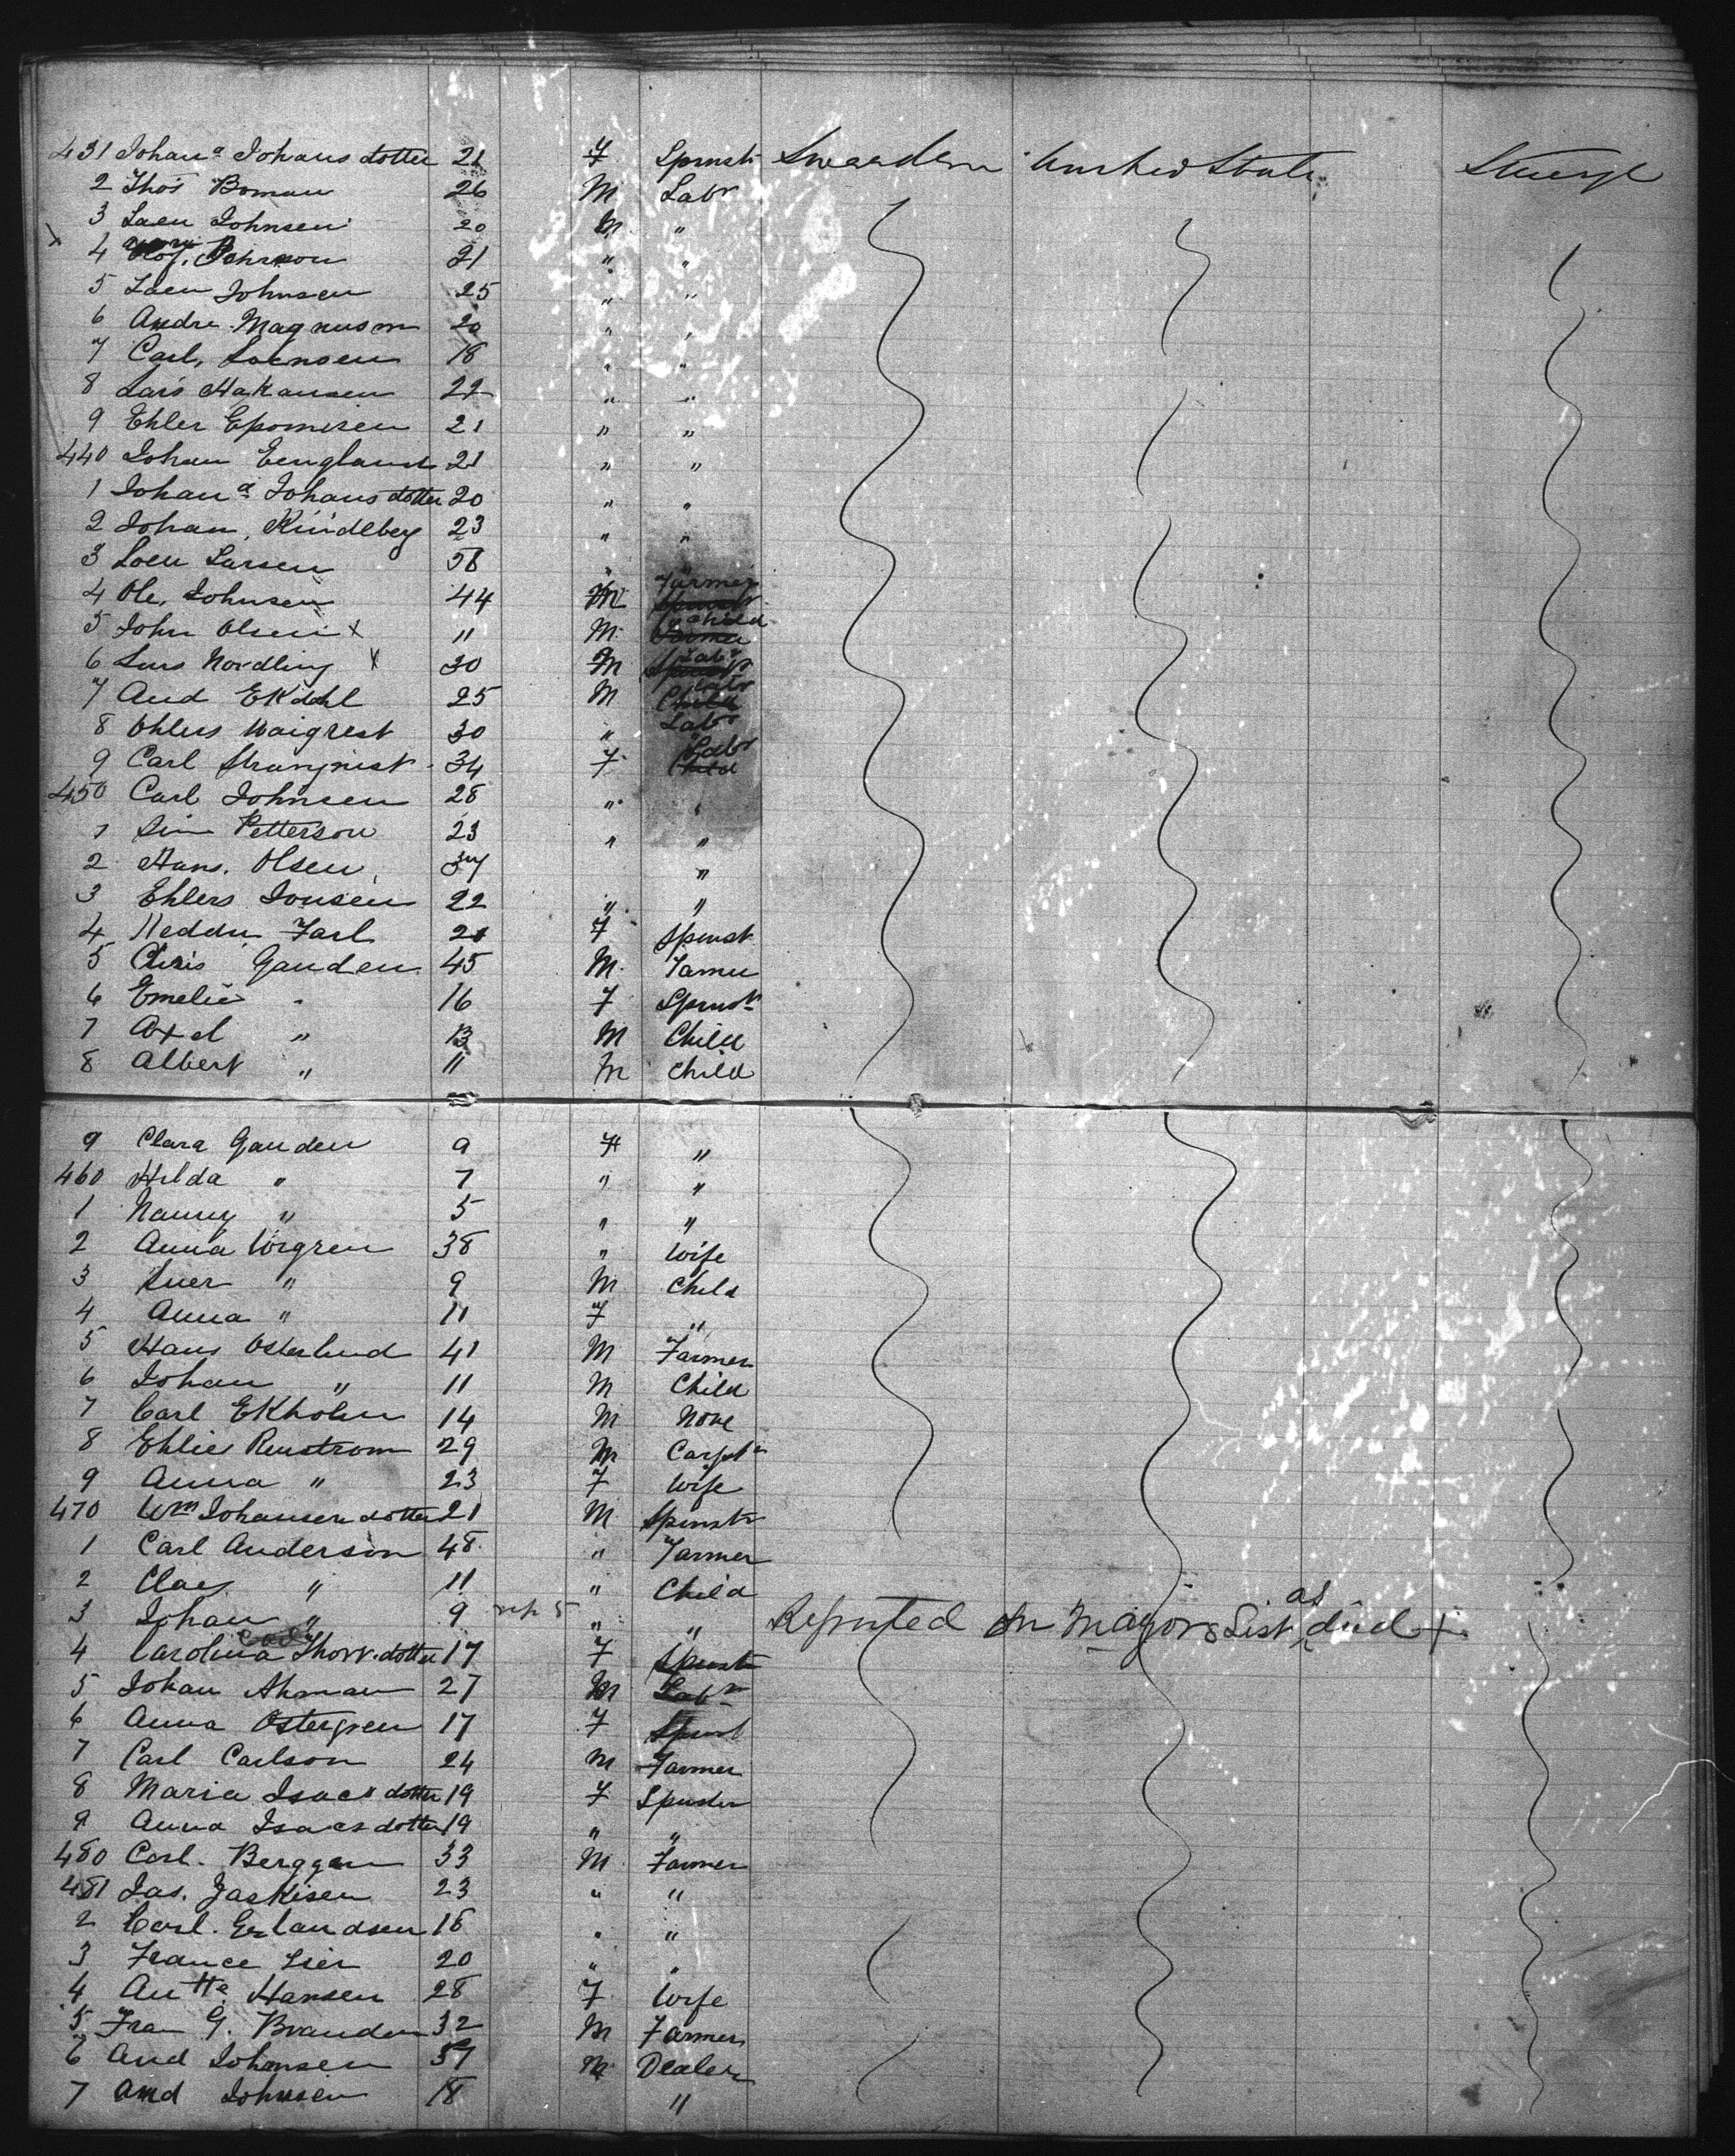 431 Johanᵃ Johans dotter 21 F Spinstr Sweeden United States Steerge
2 Thos Boman 26 M Labr
3 Laen Johnsen 20 M "
x 4 Johnson 21 " "
5 Laen Johnsen 25 " "
6 Andre Magnusm 20 " "
7 Carl, 18 " "
8 Lars Hakansen 22 " "
9 Ehler 21 " "
440 Johan Eengland 21 " "
1 Johanᵃ Johans dotter 20 " "
2 Johan, 23 " "
3 Loen Larsen " "
4 Ole, Johnsen 44 M Farmer
5 John Olsen x 11 M Child
6 Lars Nordling x 30 M Labr
7 And Ekdahl 25 M Labr
8 Ohlers Waigrest 30 " Labr
9 Carl 34 F Labr
450 Carl Johnsen 28 " "
1 Petterson 23 " "
2 Hans. Olsen 34 "
3 Ehlers Jonsen 22 " "
4 Heddu Jarl F Spinst
5 Chris Gauden 45 M Farmer
6 Emelie " 16 F Spinstr
7 Axel " 13 M Child
8 Albert " 11 M Child
9 Clara Gauden 9 F "
460 Hilda " 7 " "
1 Nanny " 5 " "
2 Anna Wigren 38 " Wife
3 Iver " 9 M Child
4 Anna " 11 F "
5 Hans Osterlund 41 M Farmer
6 Johan " 11 M Child
7 Carl Ekholm 14 M None
8 Ehlies Renstrom 29 M Carptr
9 Anna " 23 F Wife
470 Wm Johansen dotter 21 M Spinstr
1 Carl Anderson 48 " Farmer
2 Claes " 11 " Child
3 Johan " 9 " " Reported on Mayors List as died +
4 Carolina Thorr. dotter 17 F Spinstr
5 Johan Ahman 27 M Labr
6 Anna Ostergren 17 F Spinst
7 Carl Carlson 24 M Farmer
8 Maria Isacs dotter 19 F Spinster
9 Anna Isacs dotter 19 " "
480 Carl. Berggen 33 M Farmer
481 Jas. Jaskisen 23 " "
2 Carl. Erlandsen 18 " "
3 France 20 " "
4 Antte Hansen 28 F Wife
5 Fran G. Branden 32 M Farmer
6 And Johansen M Dealer
7 And Johnsen 18 "